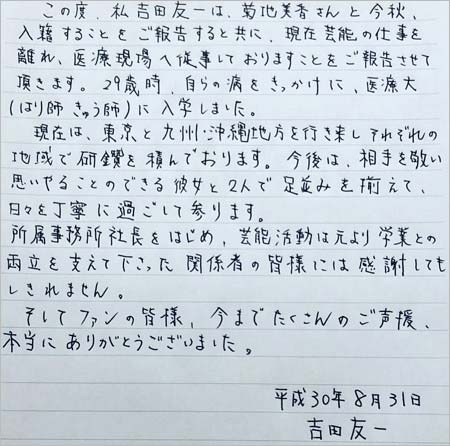 この度、私 吉田友一は、菊地美香さんと今秋、
入籍することをご報告すると共に、現在芸能の仕事を
離れ、医療現場へ従事しておりますことをご報告させて
頂きます。29歳時、自らの病をきっかけに、医療大
(はり師 きゅう師)に入学しました。
現在は、東京と九州・沖縄地方を行き来しそれぞれの
地域で研鑽を積んでおります。今後は、相手を敬い
思いやることのできる彼女と2人で足並みを揃えて、
日々を丁寧に過ごして参ります。
所属事務所社長をはじめ、芸能活動は元より学業との
両立を支えて下さった関係者の皆様には感謝しても
しきれません。
そしてファンの皆様、今までたくさんのご声援、
本当にありがとうございました。
平成30年8月31日
吉田友一